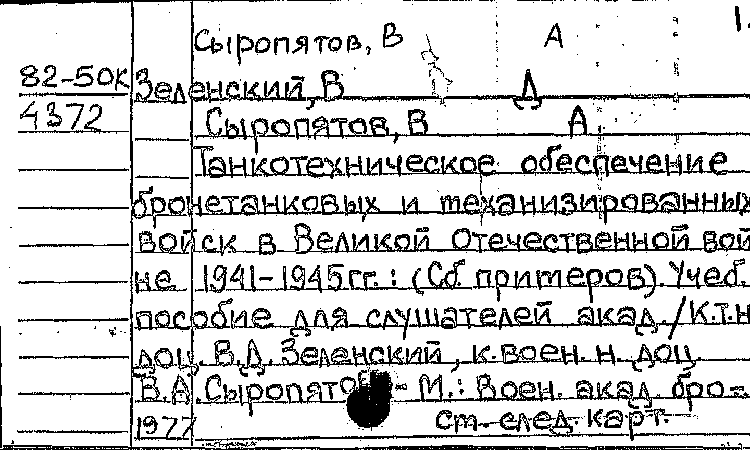 Сыропятов, В А
82-50К Зеленский, В Д
4372 Сыропятов, В А
Танкотехническое обеспечение
бронетанковых и механизированных
войск в Великой Отечественной вой
не 1941-1945гг.: (Сб. примеров). Учеб.
пособие для слушателей акад./К.т.н
доц. В.Д. Зеленский, к.воен.н. доц.
В.А. Сыропятов - М.: Воен. акад. бро=
1977 см-след. карт.